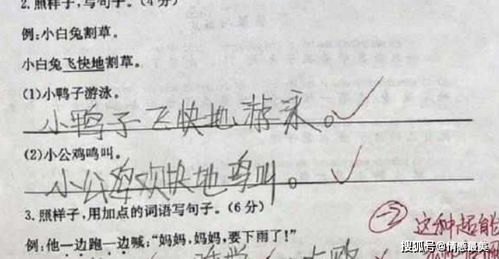 2.照样子,写句子。(4分)
例:小白兔割草。
小白兔飞快地割草。
(1)小鸭子游泳。
小鸭子飞快地游泳。
(2)小公鸡鸣叫。
小公鸡欢快地鸣叫。
3.照样子,用加点的词语写句子。(6分)
例:他一边跑一边喊:“妈妈,妈妈,要下雨了!”
这种题能
搜狐号@情感嘉奖